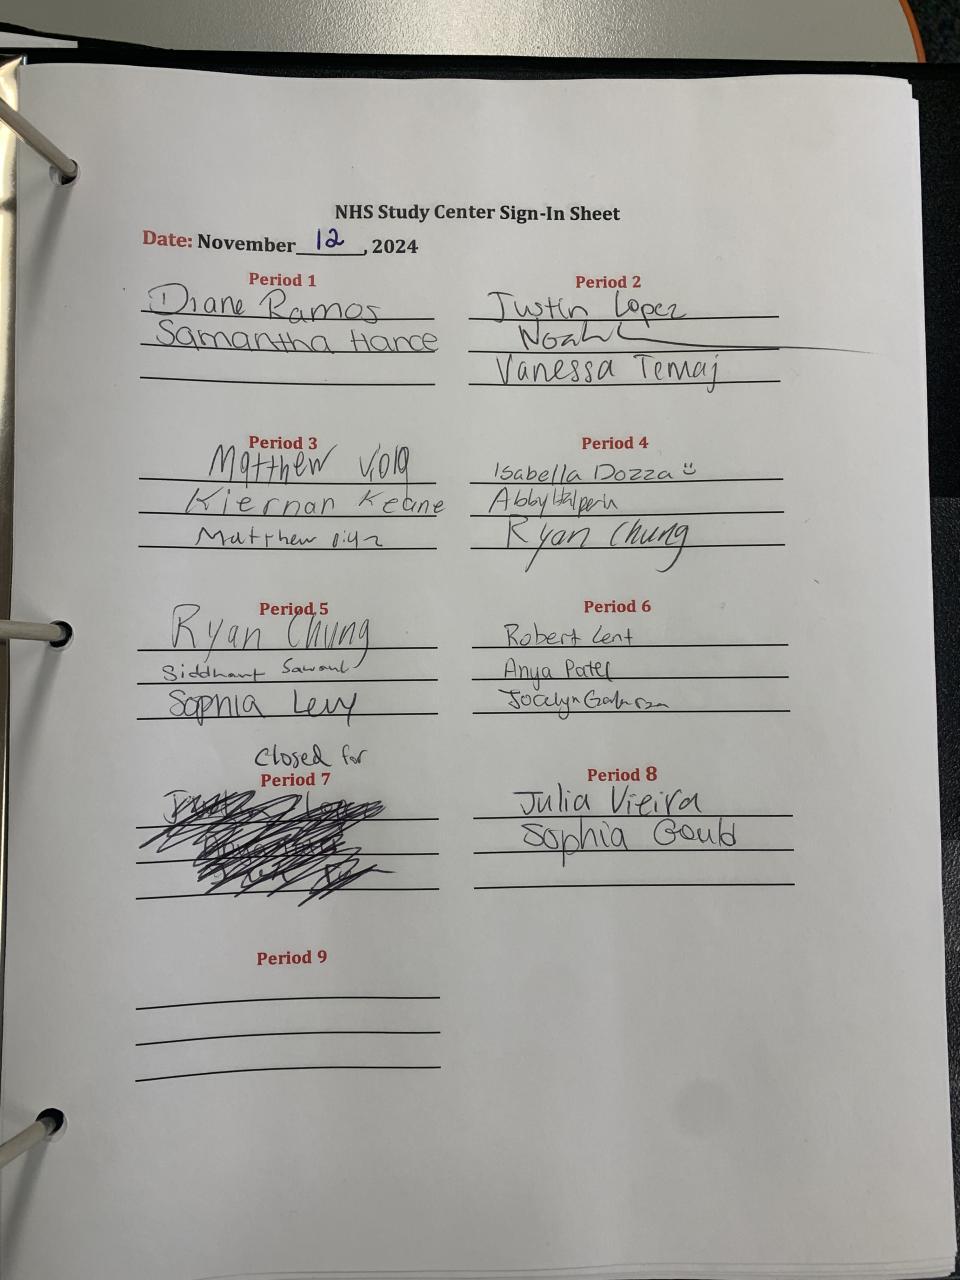 NHS Study Center Sign-In Sheet
Date: November 12, 2024
Period 1
Diane Ramos
Samantha Hance
Period 2
Justin Lopez
Noah
Vanessa Temaj
Period 3
Matthew Viola
Kiernan Keane
Matthew
Period 4
Isabella Dozza
Abby Halperin
Ryan Chung
Period 5
Ryan Chung
Siddhant Sawant
Sophia Levy
Period 6
Robert Lent
Anya Patel
Jocelyn
closed for
Period 7
Period 8
Julia Vieira
Sophia Gould
Period 9